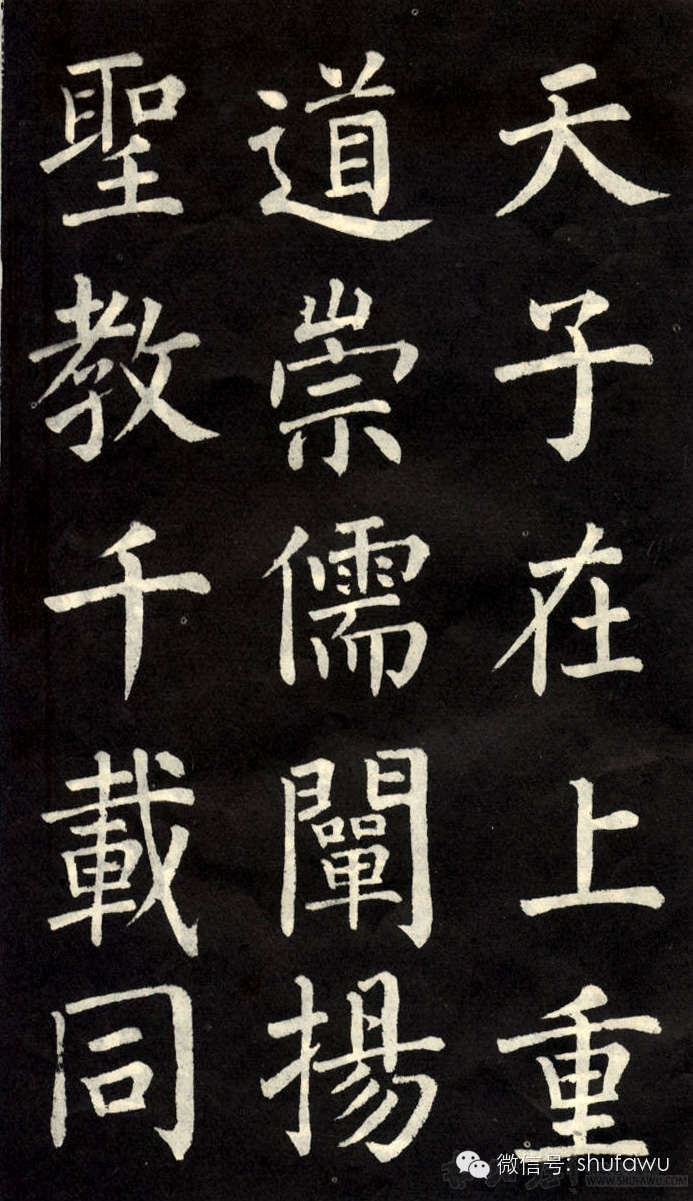 天子在上重
道崇儒闡揚
聖教千載同
微信号: shufawu
WWW.SHUFAWU.COM